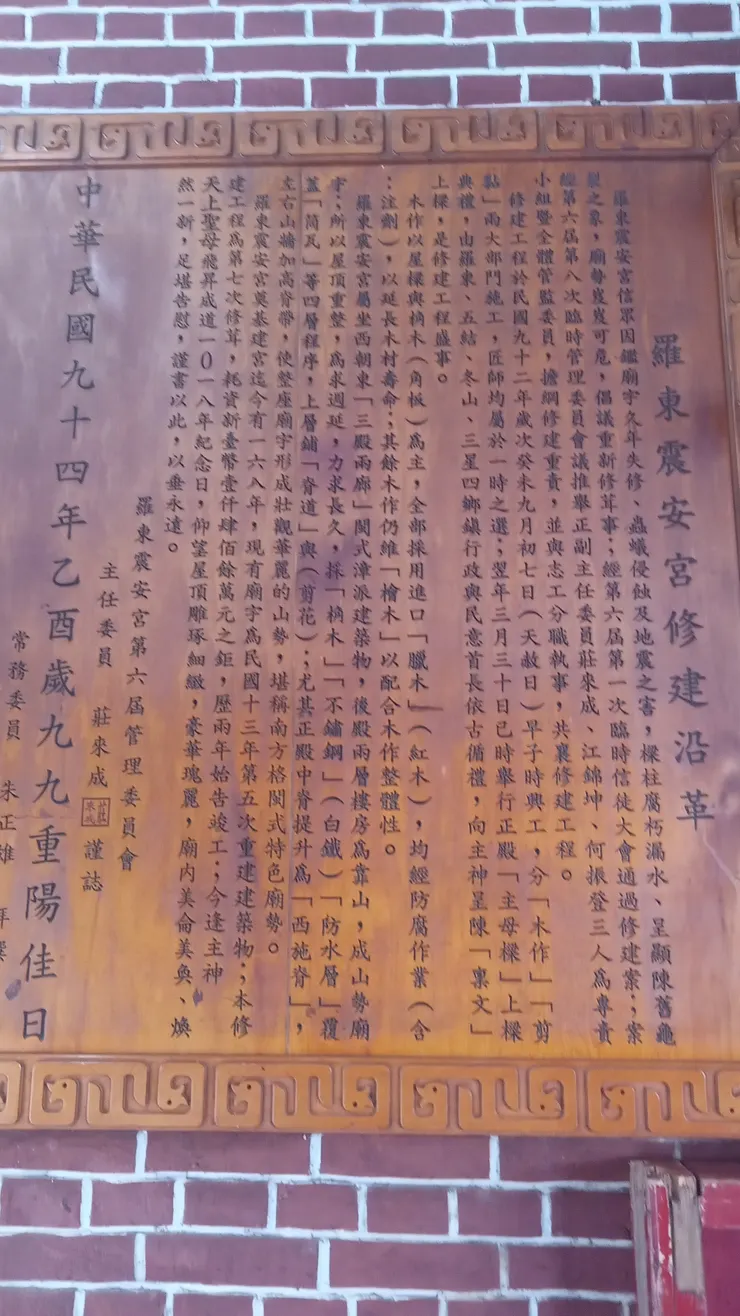 羅東震安宮修建沿革
羅東震安宮信眾因鑑廟宇久年失修、蟲蟻侵蝕及地震之害，樑柱腐朽漏水、呈顯陳舊龜
裂之象，廟勢岌岌可危，倡議重新修茸事；經第六屆第一次臨時信徒大會通過修建案；案
經第六屆第八次臨時管理委員會議推舉正副主任委員莊來成、江錦坤、何振登三人為專責
小組暨全體管監委員，擔綱修建重責，並與志工分職執事，共襄修建工程。
修建工程於民國九十二年歲次癸未九月初七日（天赦日）早子時興工，分「木作」「剪
黏」兩大部門施工，匠師均屬於一時之選；翌年三月三十日巳時舉行正殿「主母樑」上樑
典禮，由羅東、五結、冬山、三星四鄉鎮行政與民意首長依古循禮，向主神呈陳「稟文」
上樑，是修建工程盛事。
木作以屋樑與桷木（角板）為主，全部採用進口「臘木」（紅木），均經防腐作業（含
：注劑），以延長木材壽命；其餘木作仍維「檜木」以配合木作整體性。
羅東震安宮屬坐西朝東「三殿兩廊」閩式漳派建築物，後殿兩層樓房為靠山，成山勢廟
宇；所以屋頂重整，為求週延，力求長久，採「桷木」「不鏽鋼」（白鐵）「防水層」覆
蓋「筒瓦」等四層程序，上層鋪「脊道」與（剪花）；尤其正殿中脊提升為「西施脊」，
左右山墻加高脊帶，使整座廟宇形成壯觀華麗的山勢，堪稱南方格閩式特色廟勢。
羅東震安宮奠基建宮迄今有一六八年，現有廟宇為民國十三年第五次重建建築物；本修
建工程為第七次修茸，耗資新臺幣壹仟肆佰餘萬元之鉅，歷兩年始告竣工；今逢主神
天上聖母飛昇成道一0一八年紀念日，仰望屋頂雕琢細緻，豪華瑰麗，廟內美侖美奐、煥
然一新，足堪告慰，謹書以此，以垂永遠。
羅東震安宮第六屆管理委員會
主任委員 莊來成 謹誌
中華民國九十四年乙酉歲九九重陽佳日
常務委員 朱正雄 拜撰